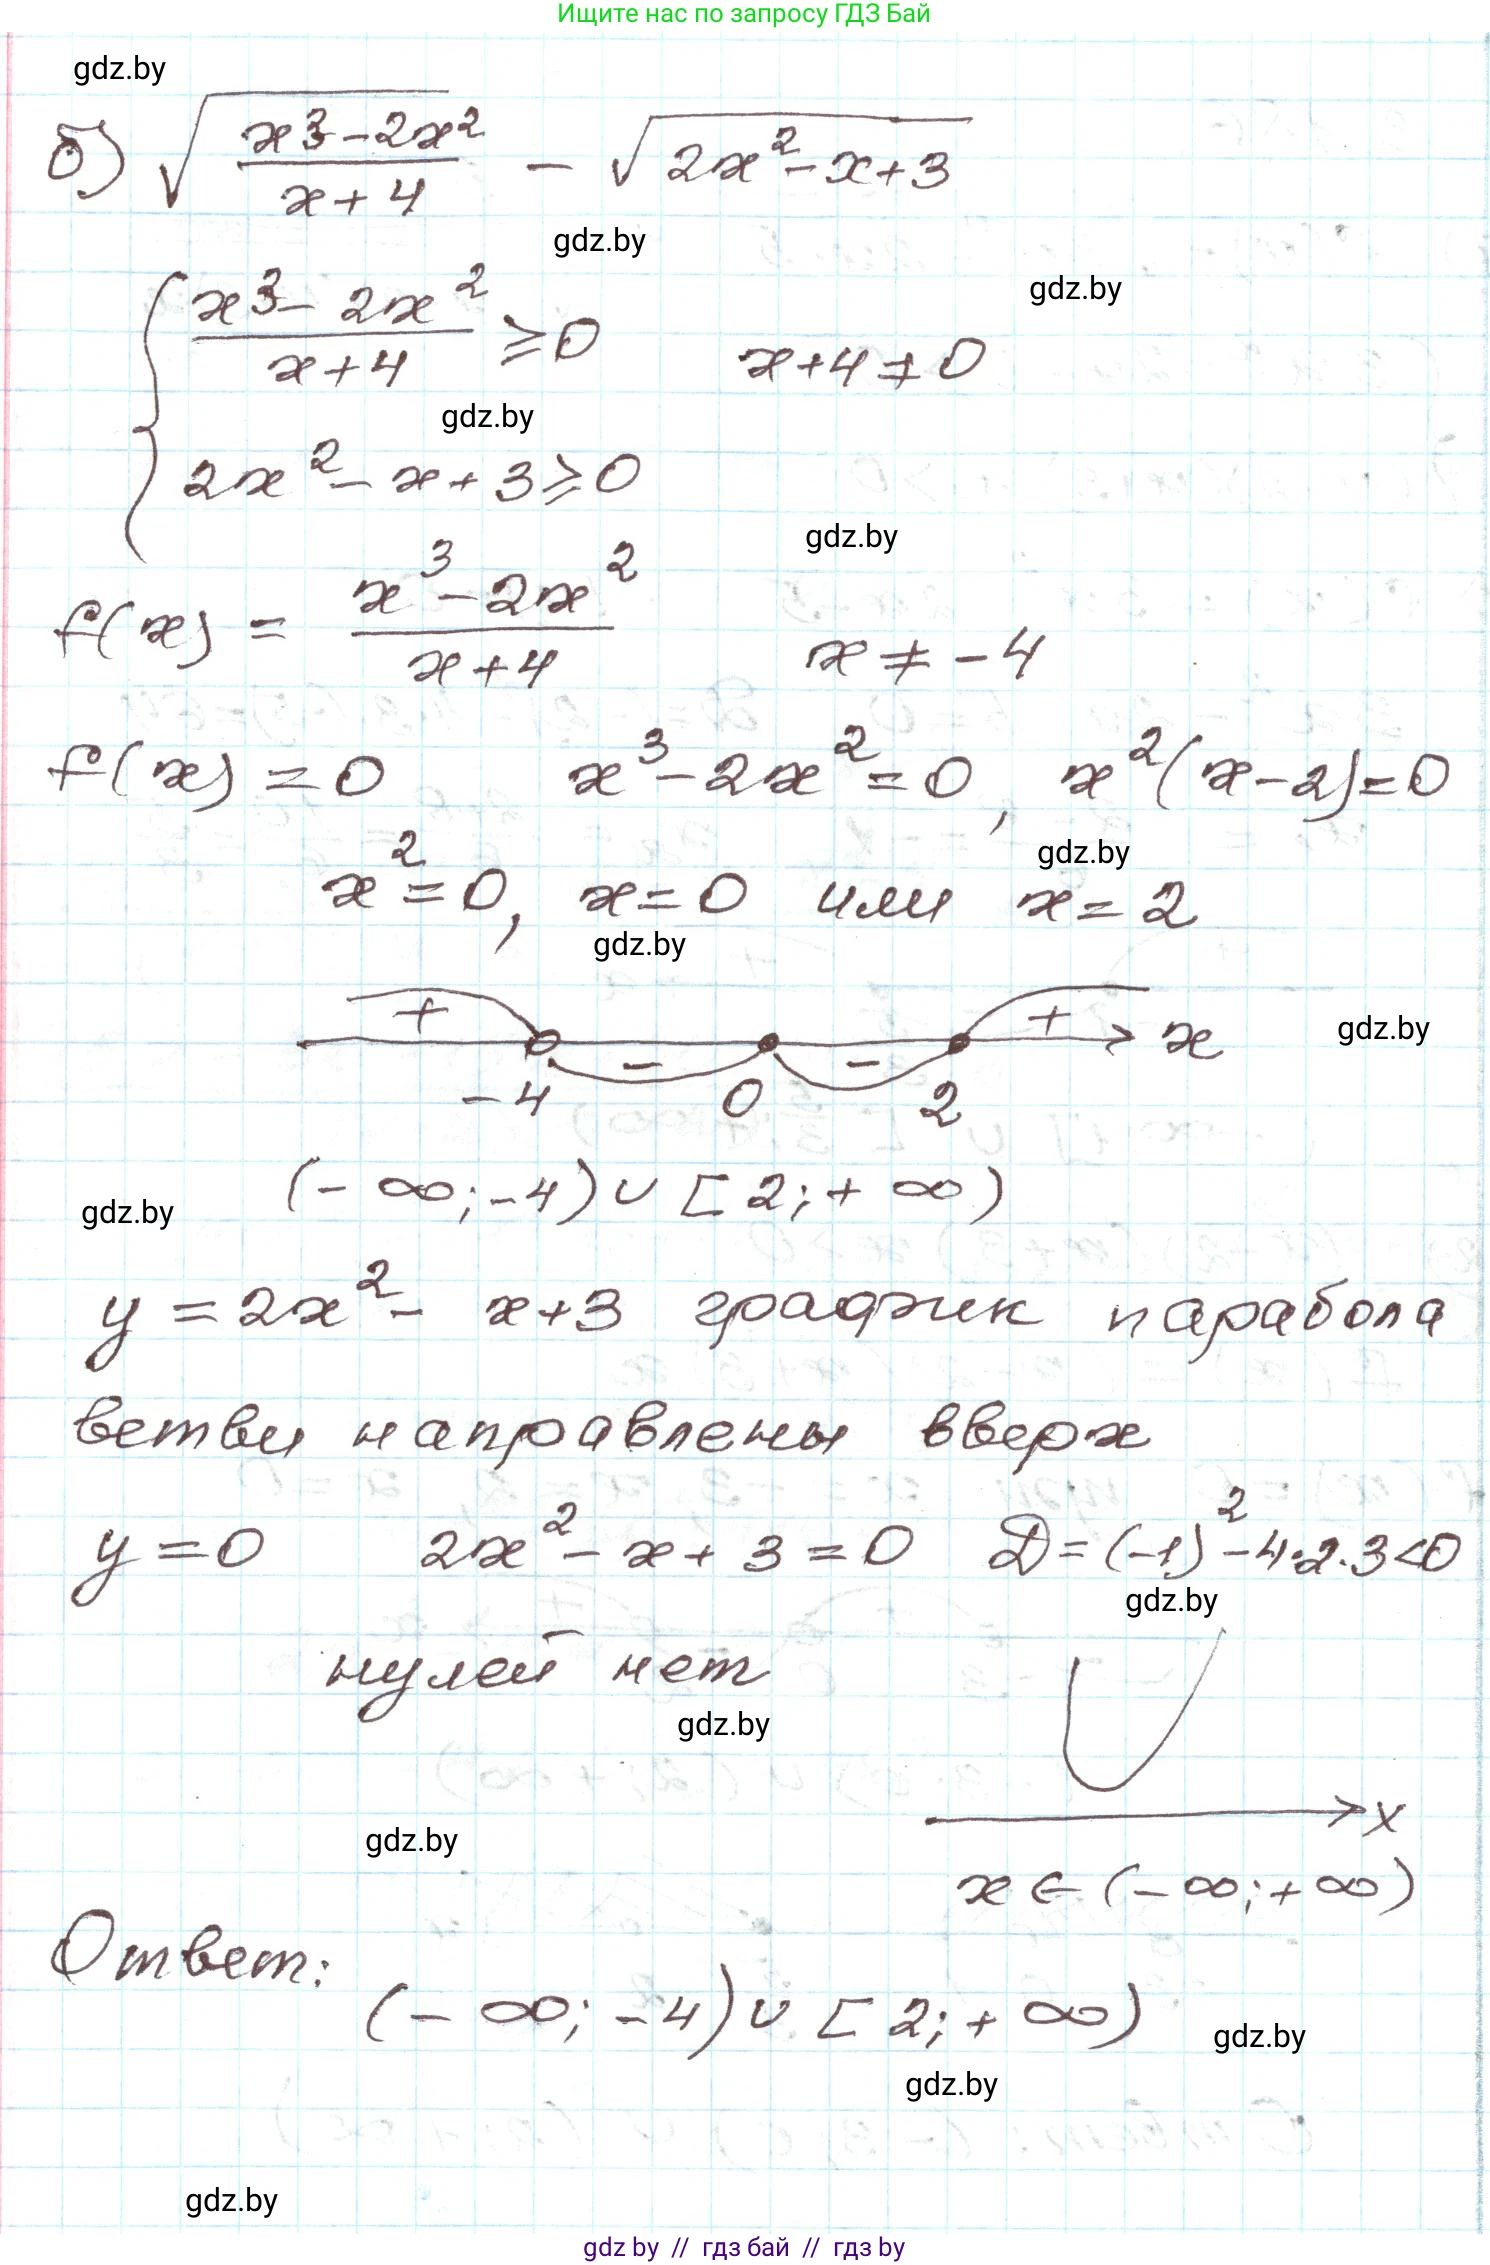 Ищите нас по запросу ГДЗ Бай
gdz.by
б) √((x³-2x²)/(x+4)) - √(2x²-x+3)
gdz.by
gdz.by
{ (x³-2x²)/(x+4) ≥ 0    x+4≠0
gdz.by
2x²-x+3≥0
gdz.by
f(x) = (x³-2x²)/(x+4)    x≠-4
f(x)=0    x³-2x²=0, x²(x-2)=0
gdz.by
x²=0, x=0 или x=2
gdz.by
+ - - + x
gdz.by
-4 0 2
(-∞;-4)∪[2;+∞)
gdz.by
y=2x²-x+3 график парабола
ветви направлены вверх
y=0    2x²-x+3=0    D=(-1)²-4·2·3<0
gdz.by
нулей нет
gdz.by
x
gdz.by
x∈(-∞;+∞)
Ответ:
(-∞;-4)∪[2;+∞)
gdz.by
gdz.by
gdz.by
gdz by // гдз бай // гдз by